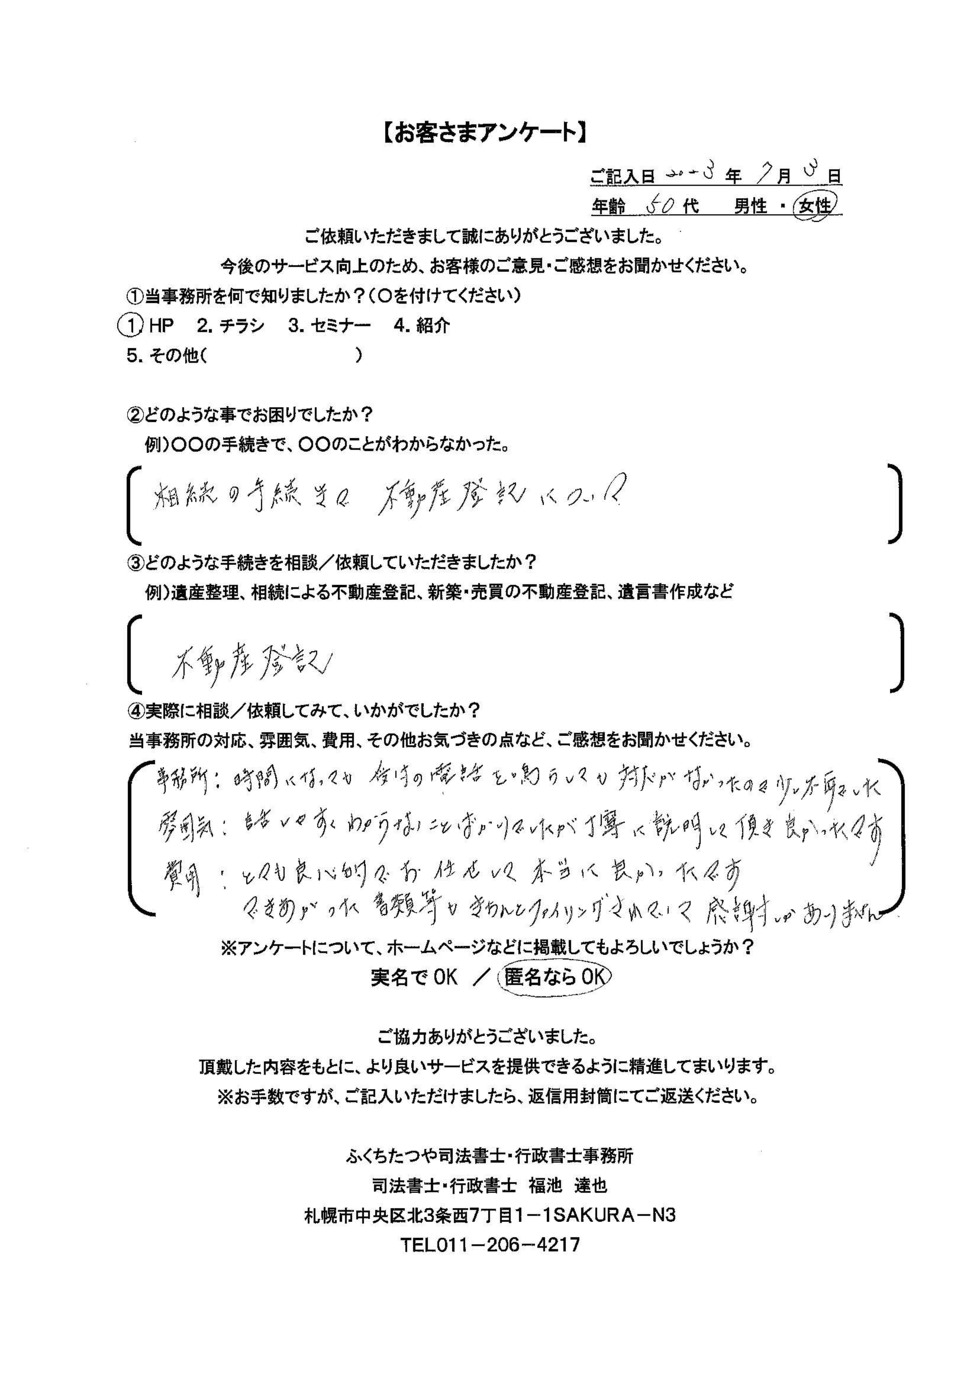 【お客さまアンケート】
ご記入日 2023 年 7月 3日
年齢 50代 男性・女性
ご依頼いただきまして誠にありがとうございました。
今後のサービス向上のため、お客様のご意見・ご感想をお聞かせください。
①当事務所を何で知りましたか？（○を付けてください）
1. HP 2. チラシ 3. セミナー 4. 紹介
5. その他（ ）
②どのような事でお困りでしたか？
例）○○の手続きで、○○のことがわからなかった。
相続の手続きで 不動産登記について
③どのような手続きを相談／依頼していただきましたか？
例）遺産整理、相続による不動産登記、新築・売買の不動産登記、遺言書作成など
不動産登記
④実際に相談／依頼してみて、いかがでしたか？
当事務所の対応、雰囲気、費用、その他お気づきの点など、ご感想をお聞かせください。
事務所：時間になっても 受付の電話を鳴らしても 対応がなかったので少し不安でした
雰囲気：話しやすくわからないことばかりでしたが丁寧に説明して頂き良かったです
費用：とても良心的でお任せして本当に良かったです
できあがった書類等もきちんとファイリングされていて感謝しかありません
※アンケートについて、ホームページなどに掲載してもよろしいでしょうか？
実名でOK ／ 匿名ならOK
ご協力ありがとうございました。
頂戴した内容をもとに、より良いサービスを提供できるように精進してまいります。
※お手数ですが、ご記入いただけましたら、返信用封筒にてご返送ください。
ふくちたつや司法書士・行政書士事務所
司法書士・行政書士 福池 達也
札幌市中央区北3条西7丁目1－1SAKURA－N3
TEL011－206－4217